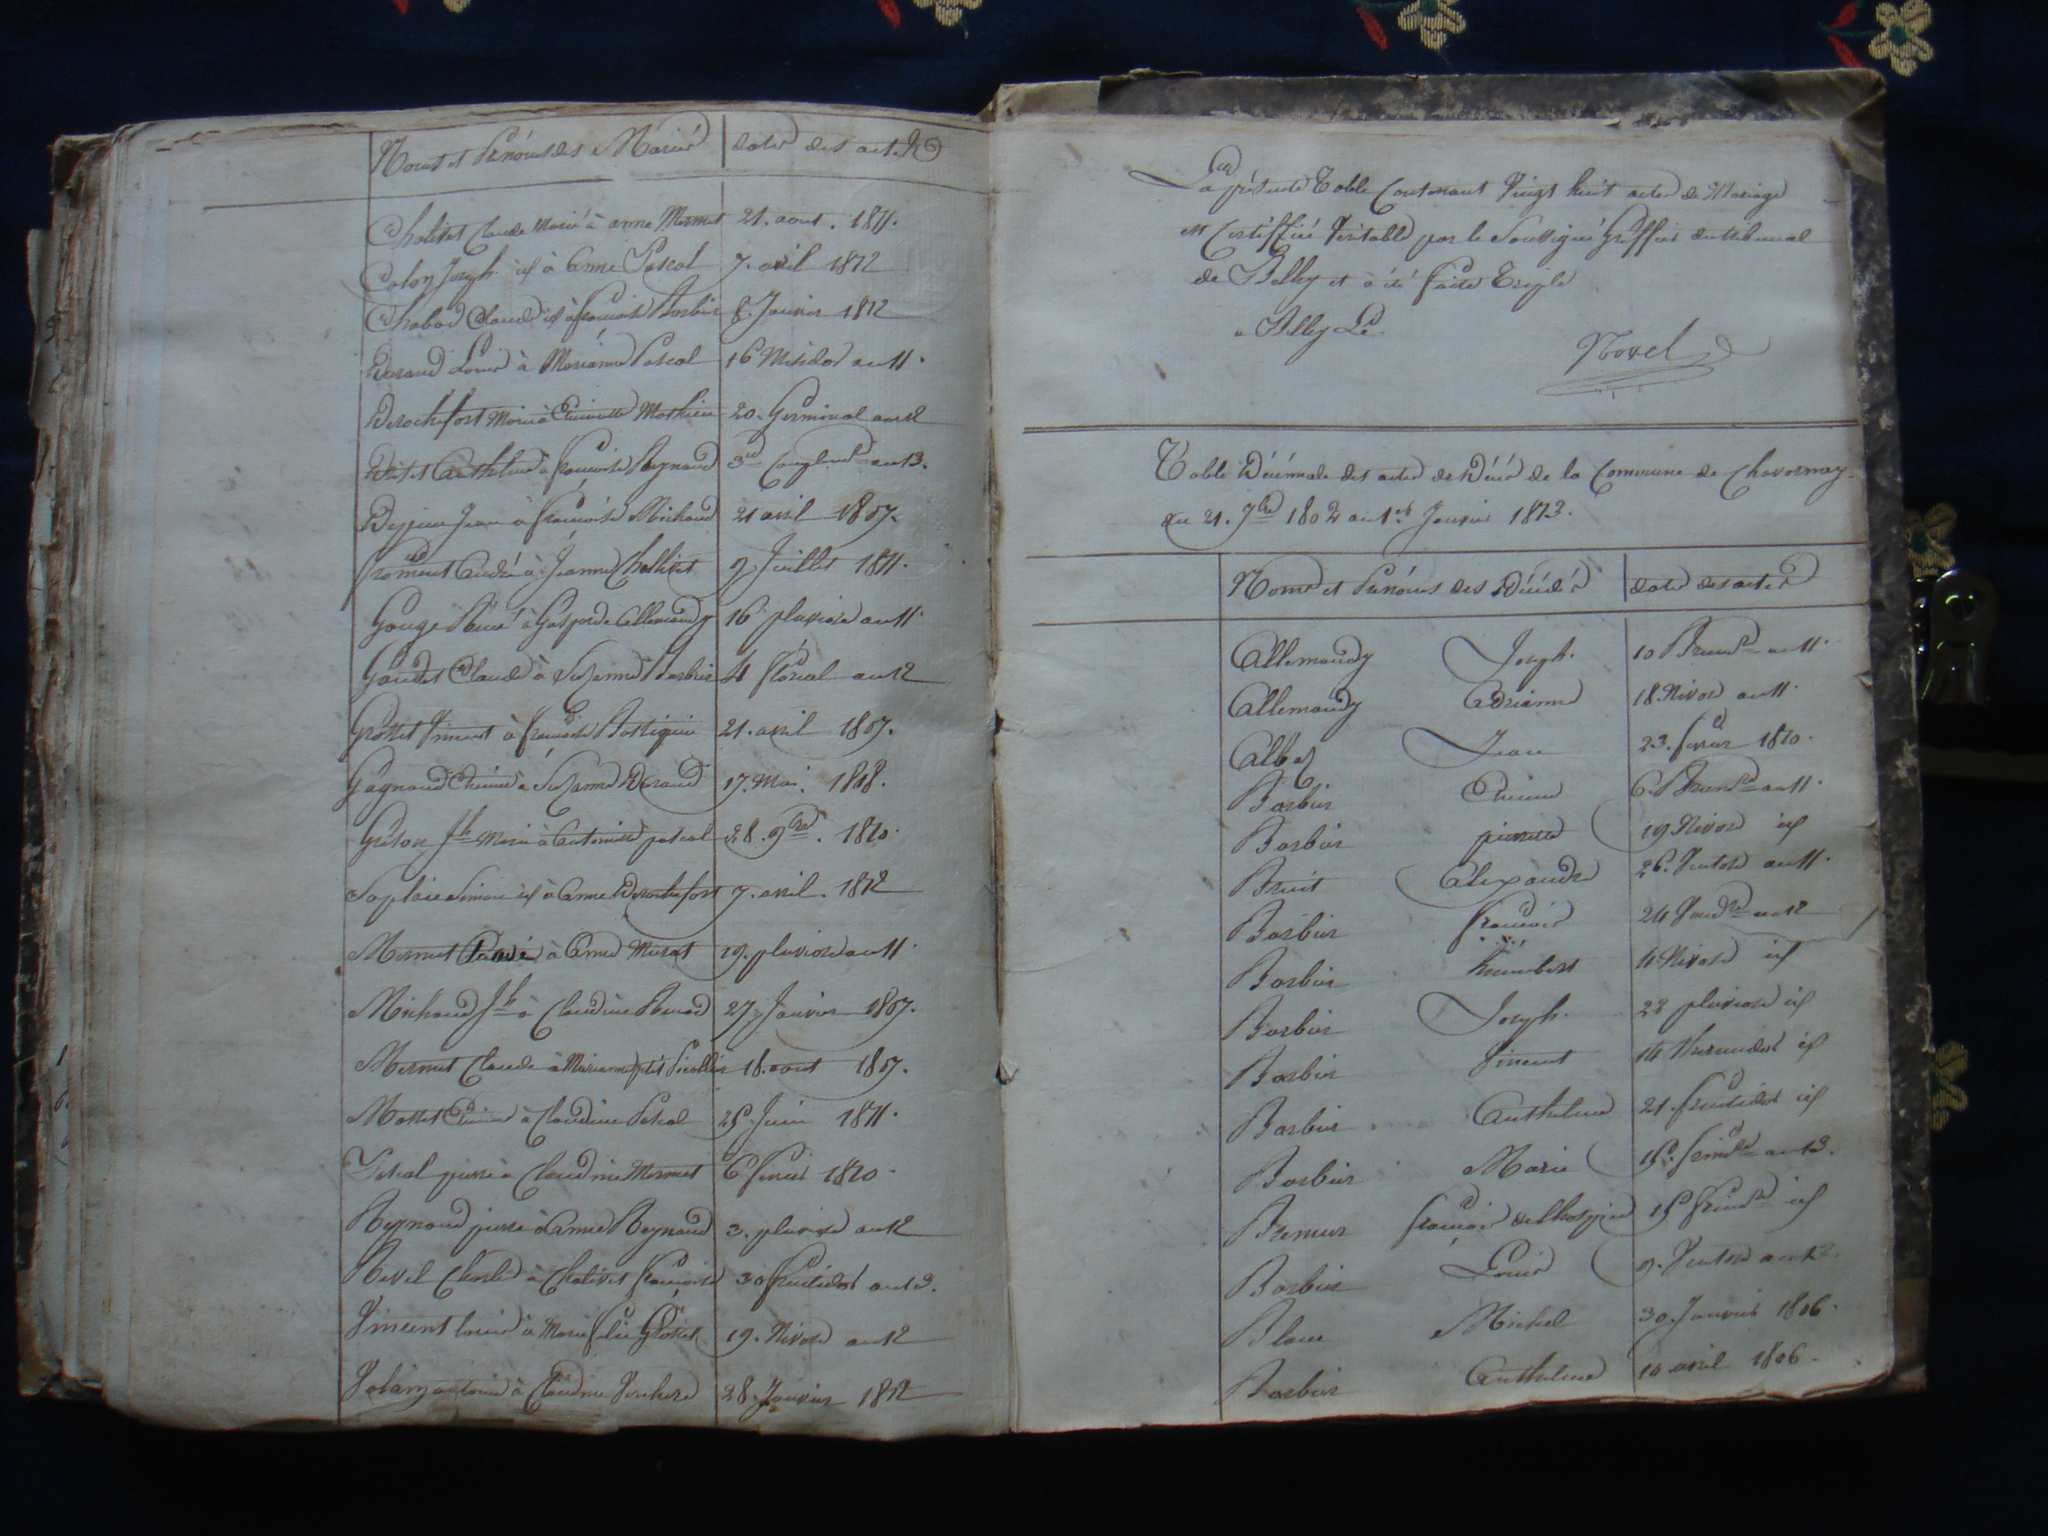 Noms et Prénoms des Mariés date des actes
Cholivet Claude Marié à anne Mermet 21. aout. 1811.
Colon Joseph id à Anne Pascal 7. avril 1812
Chabod Claude id à françoise Barbier 8. Janvier 1812
Durand Louis à Marianne Pascal 16 Messidor an 11.
Derochefort Marié à Mathieu 20. Germinal an 12
Anthelme à françoise Reynaud 3me Complre an 13.
Jean à françoise Michaud 21 avril 1807.
froment André à Jeanne Chollivet 9 Juillet 1811.
Gouge à Gasparde Allemandy 16 pluviose an 11.
Goudet Claude à Suzanne Barbier 4 floréal an 12
Grosset Vincent à françoise 21. avril 1807.
Gagnaud à Suzanne Durand 17. Mai. 1808.
Jh Marié à Antoinette pascal 28. 9bre. 1810.
Simon id à Anne Derochefort 7. avril. 1812
Mermet à Anne Murat 19. pluviose an 11.
Michaud Jh à Claudine 27 Janvier 1807.
Mermet Claude à Marianne 18. aout 1807.
à Claudine Pascal 25 Juin 1811.
Pascal pierre à Claudine Mermet 6 fevrier 1810.
Reynaud pierre à Anne Reynaud 3. pluviose an 12
Revel Charles à Cholivet françoise 30 fructidor an 13.
Vincent louis à Marie Grosset 19. Nivose an 12
antoine à Claudine 28. Janvier 1812
La présente Table Contenant Vingt huit actes de Mariage
est Certiffiée Véritable par le Soussigné Greffier du tribunal
de Belley et à été faite Triple
a Belley Le
Novel
Table Décénnale des actes de Décès de la Commune de Chavornay
du 21. 7bre 1802 au 1er Janvier 1813.
Noms et Prénoms des Décédés date des actes
Allemandy Joseph. 10 Brumre an 11.
Allemandy Adrianne 18. Nivose an 11.
Albert Jean 23. fevrier 1810.
Barbier 6. Brumre an 11.
Barbier pierrette 19 Nivose id
Alexandre 26. Ventose an 11.
Barbier françois 24 Vendre an 12
Barbier humbert 4 Nivose id
Barbier Joseph. 22 pluviose id
Barbier Vincent 14 Thermidor id
Barbier Anthelme 21. fructidor id
Barbier Marie 15. frimre an 13.
françois de l'hospice 15 frimre id
Barbier Louis 9. Ventose an 13.
Blanc Michel 30. Janvier 1806.
Barbier Anthelme 10 avril 1806.